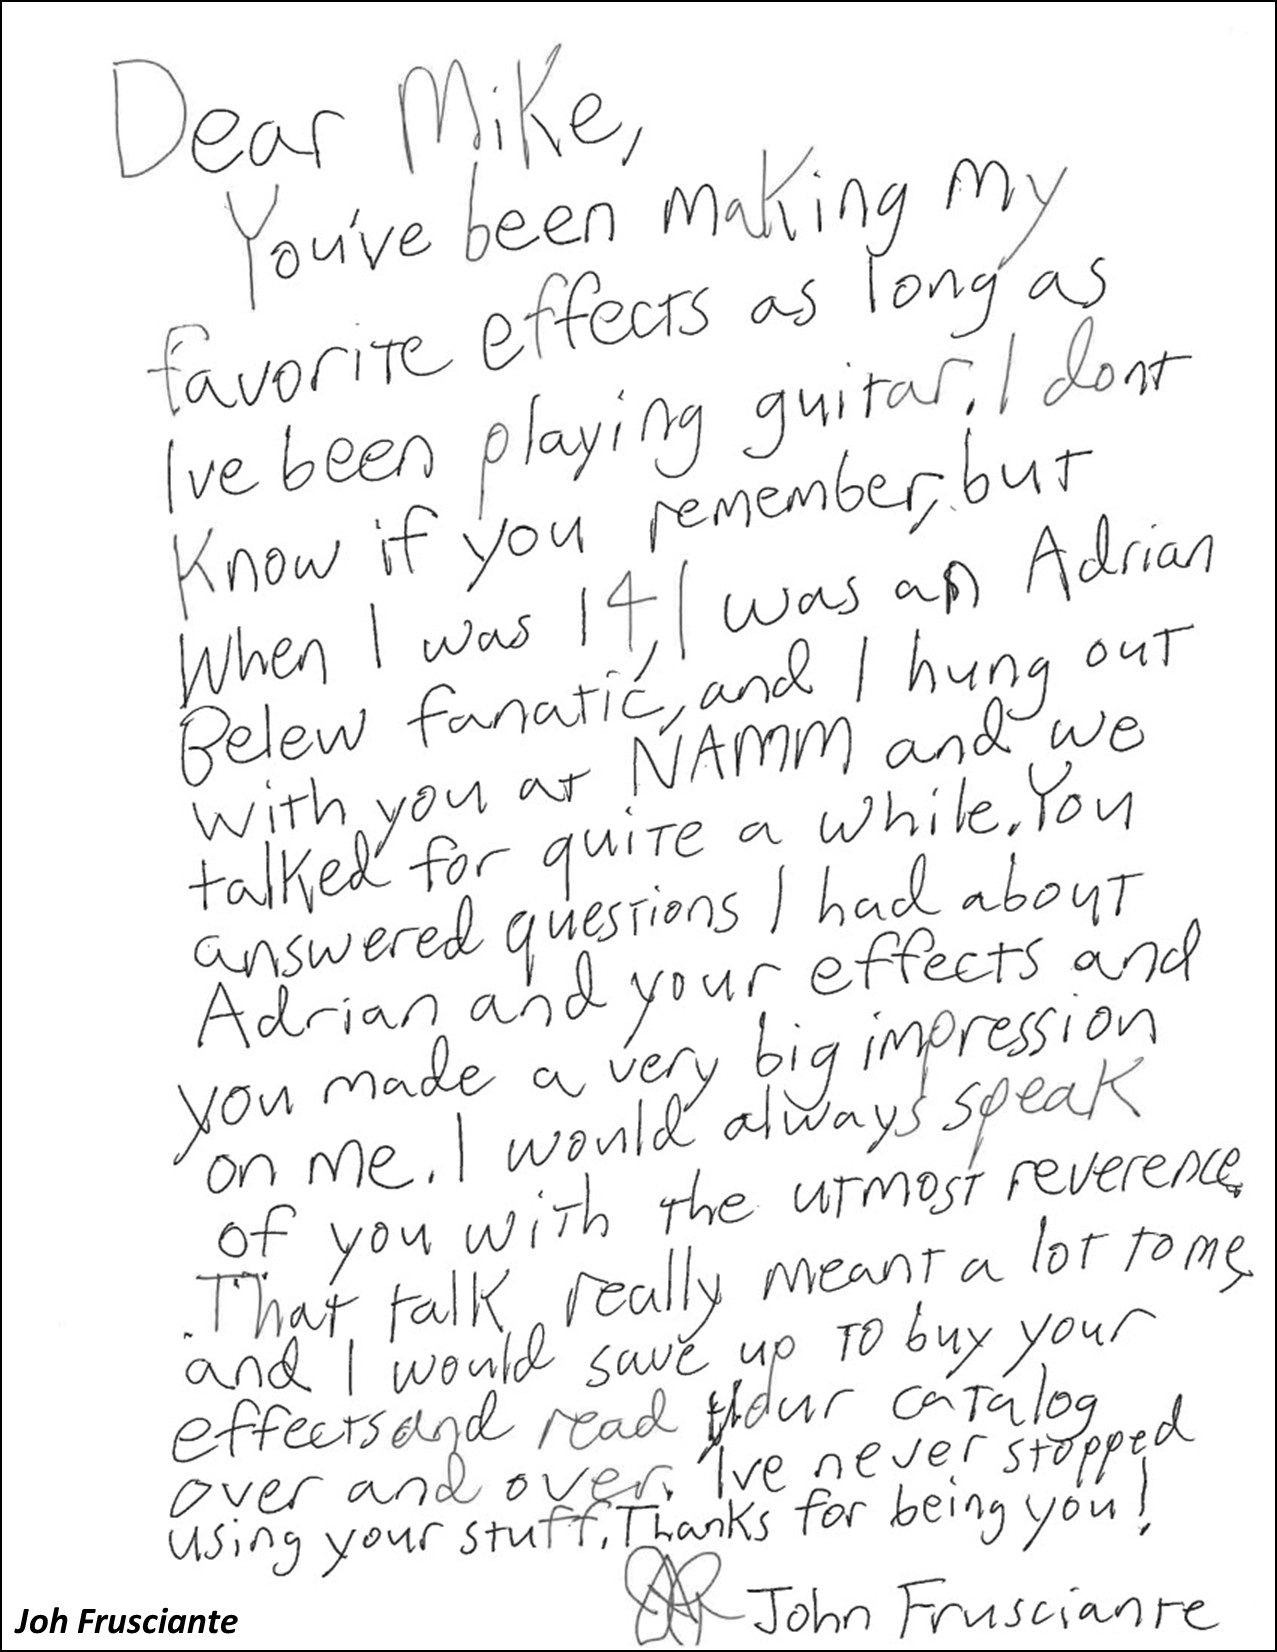 Dear Mike,
You've been making my
favorite effects as long as
I've been playing guitar. I dont
know if you remember, but
when I was 14, I was an Adrian
Belew fanatic, and I hung out
with you at NAMM and we
talked for quite a while. You
answered questions I had about
Adrian and your effects and
you made a very big impression
on me. I would always speak
of you with the utmost reverence.
That talk really meant a lot to me,
and I would save up to buy your
effects and read your catalog
over and over. I've never stopped
using your stuff. Thanks for being you!
John Frusciante
Joh Frusciante